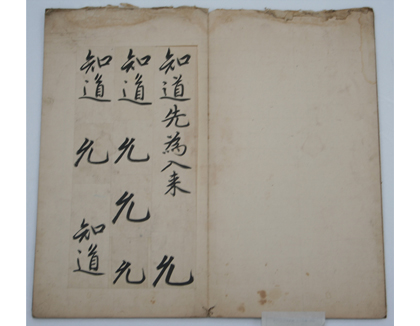 知道先為入来 允
知道 允 允 允
知道 允 知道